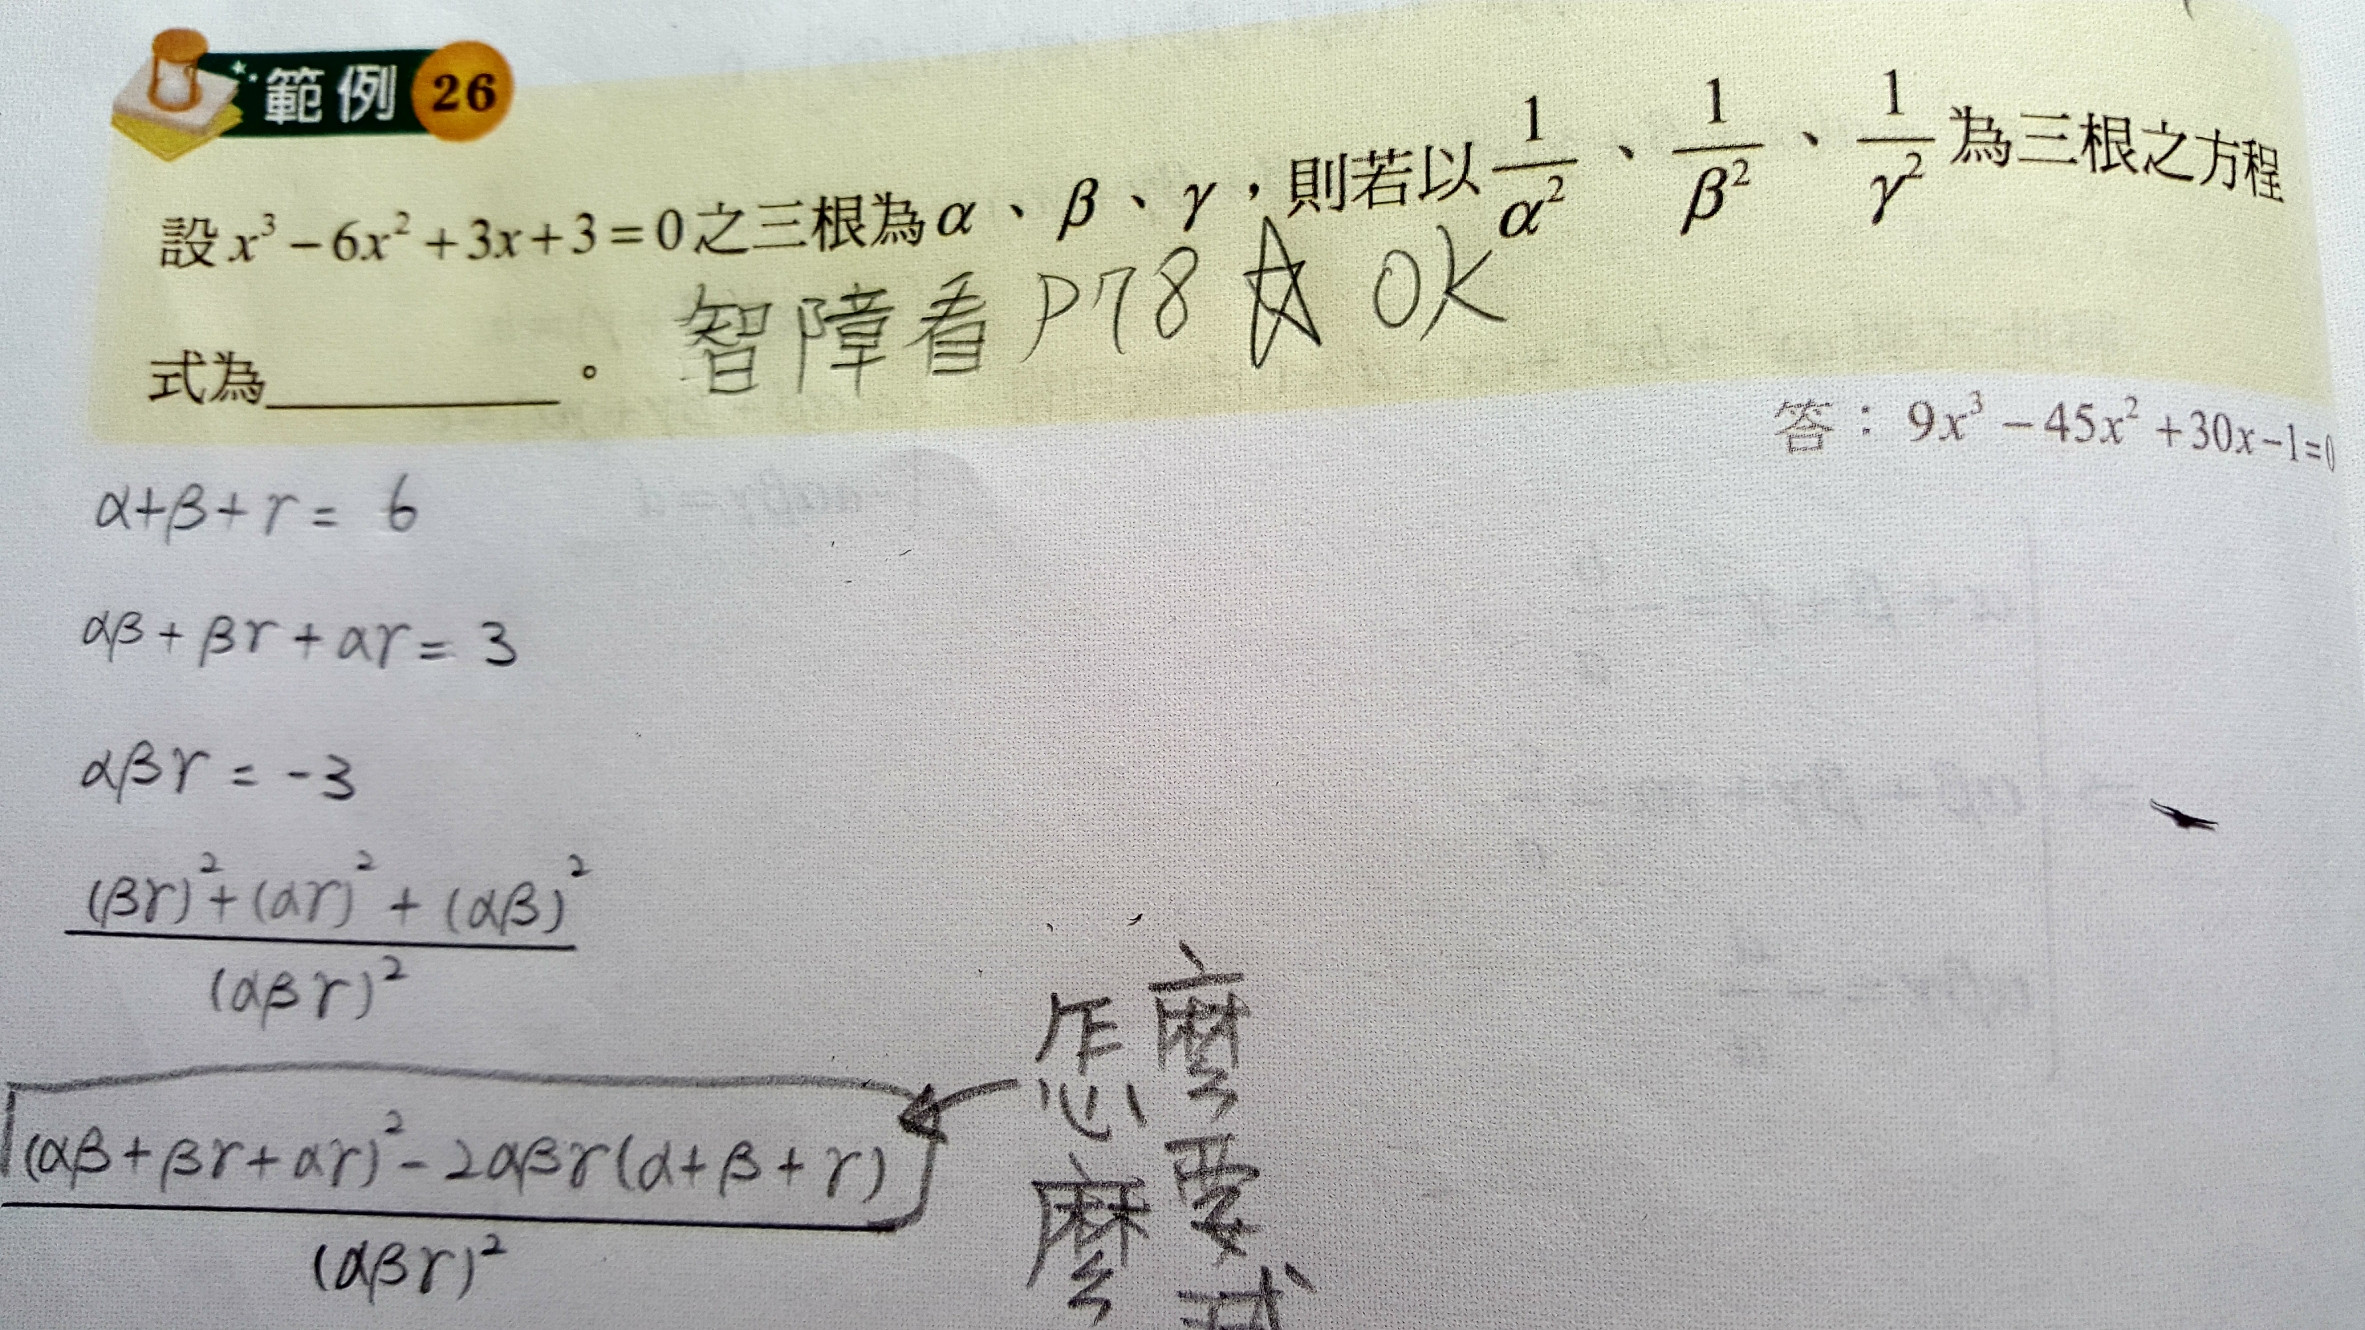 範例 26
設 x³ − 6x² + 3x + 3 = 0 之三根為 α 、 β 、 γ ，則若以 1/α² 、 1/β² 、 1/γ² 為三根之方程
式為________ 。
智障看 P78 ☆ OK
答： 9x³ − 45x² + 30x − 1 = 0
α+β+γ = 6
αβ + βγ + αγ = 3
αβγ = -3
((βγ)² + (αγ)² + (αβ)²) / (αβγ)²
((αβ + βγ + αγ)² - 2αβγ(α + β + γ)) / (αβγ)²
怎麼
麼要